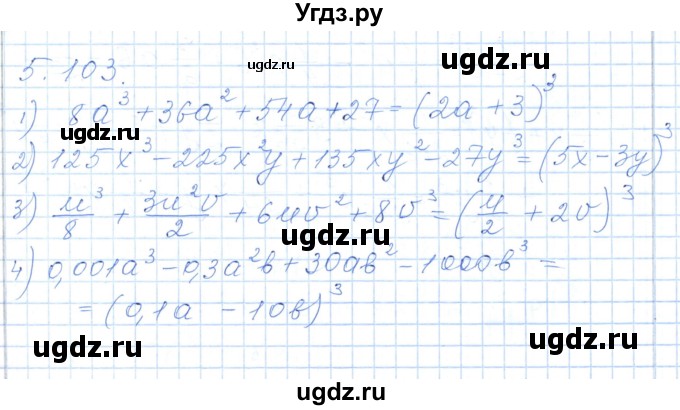 Угдз.ру
5.103.
ugdz.ru
ugdz.ru
1) 8a³+36a²+54a+27=(2a+3)³
2) 125x³-225x²y+135xy²-27y³=(5x-3y)³
3) u³/8 + 3u²v/2 + 6uv²+8v³=(u/2+2v)³
ugdz.ru
4) 0,001a³-0,3a²b+30ab²-1000b³=
=(0,1a -10b)³
ugdz.ru
ugdz.ru
ugdz.ru
ugdz.ru